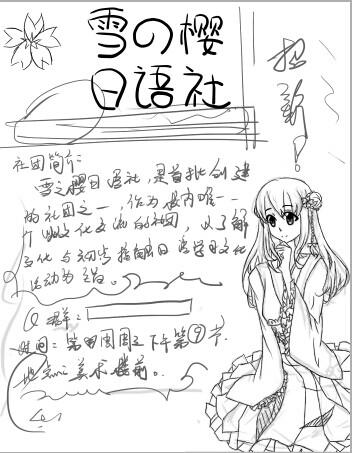 雪の樱
日语社
招新！
社团简介：
雪之樱日语社，是首批创建
的社团之一，作为校内唯一一
个以文化交流的社团，以了解
文化与初步指导日语学习文化
活动为主旨。
Q群：
时间：第四周周三下午第⑨节.
地点：美术楼前。